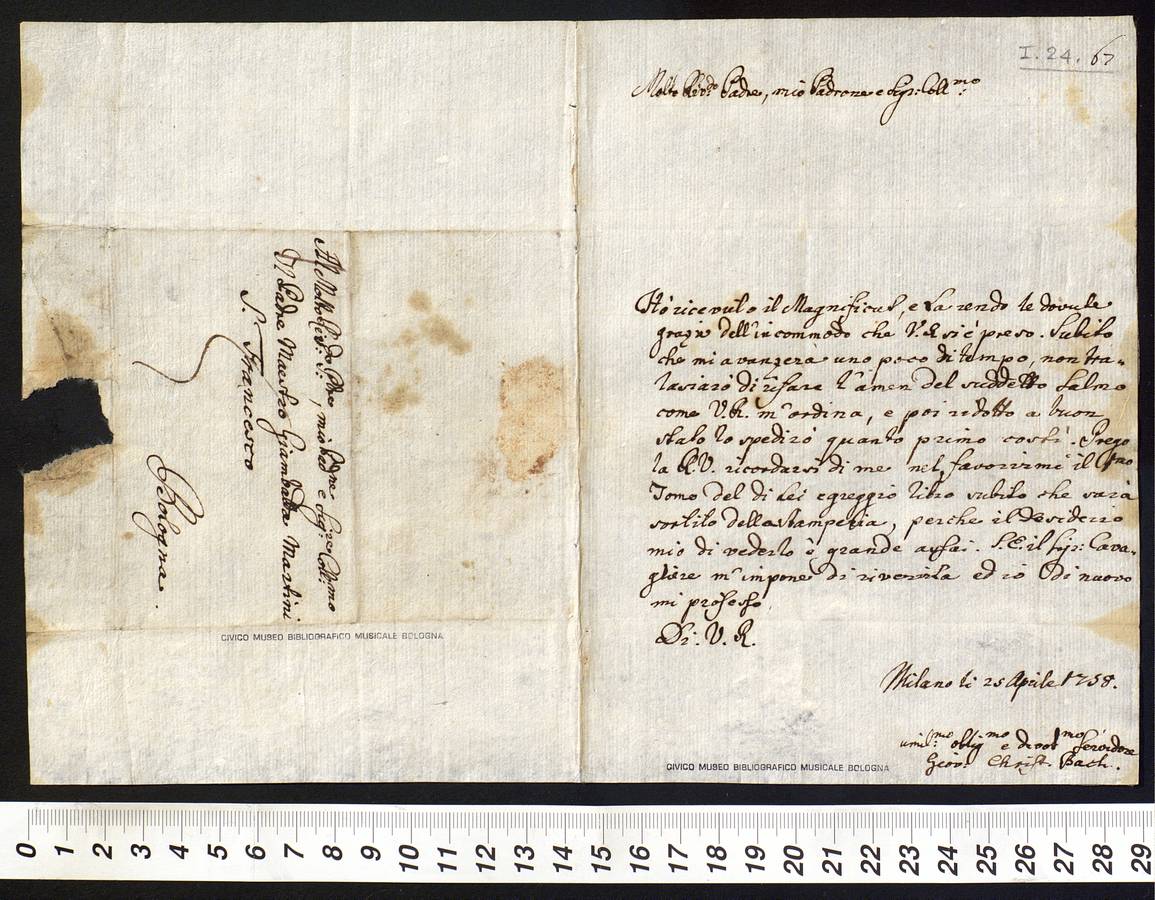 I. 24. 67
Molto Rev:do Padre, mio Padrone e Sigr: Coll:mo
Hò ricevuto il Magnificat, e La rendo le dovute
grazie dell'incommodo che V.R. si è preso. Subito
che mi avanzerà uno poco di tempo, non tra-
lasciarò di rifare l'amen del suddetto salmo
come V.R. m'ordina, e poi ridotto a buon
stato lo spedirò quanto primo costì. Prego
la R.V. ricordarsi di me nel favorirmi il
Tomo del di Lei egreggio libro subito che sarà
sortito della stamperia, perche il desiderio
mio di vederlo è grande assai. S.E. il Sigr: Cava-
gliere m'impone di riverirla ed io di nuovo
mi professo
Di: V. R.
Milano li 25 Aprile 1758.
umil:mo oblig:mo e devot:mo Servidore
Giov: Christ: Bach.
Al Molto Rev:do Pre, mio Padne e Sigre Collmo
Il Padre Maestro Giambatta Martini
S. Francesco
Bologna.
CIVICO MUSEO BIBLIOGRAFICO MUSICALE BOLOGNA
CIVICO MUSEO BIBLIOGRAFICO MUSICALE BOLOGNA
0 1 2 3 4 5 6 7 8 9 10 11 12 13 14 15 16 17 18 19 20 21 22 23 24 25 26 27 28 29